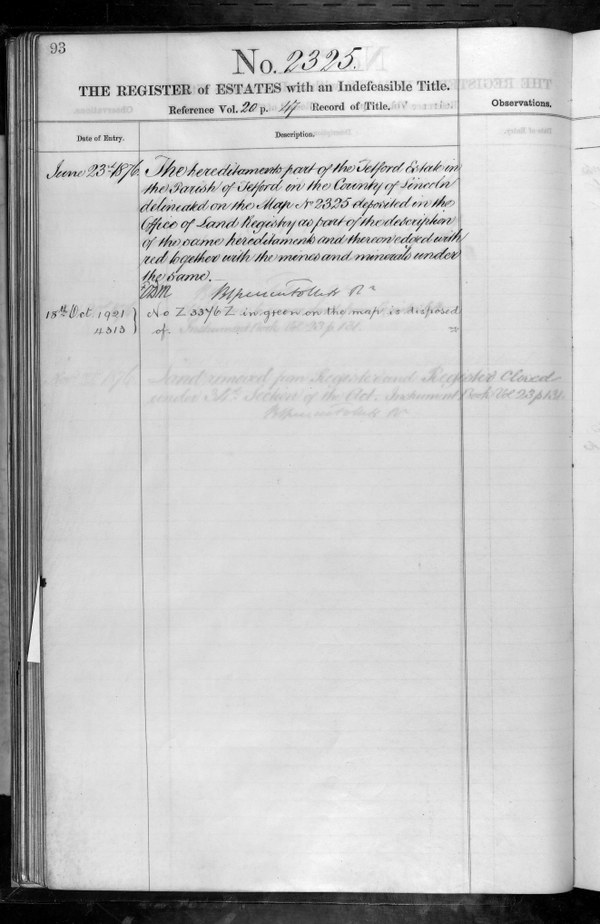 93
No. 2325.
THE REGISTER of ESTATES with an Indefeasible Title.
Reference Vol. 20 p. 47 Record of Title.
Observations.
Date of Entry.
Description.
June 23rd 1876.
The hereditaments part of the Tetford Estate in
the Parish of Tetford in the County of Lincoln
delineated on the Map No 2325 deposited in the
Office of Land Registry as part of the description
of the same hereditaments and thereon edged with
red together with the mines and minerals under
the same.
18th Oct 1921
4313
No Z 3376 Z in green on the map is disposed
of.
Land removed from Register and Register Closed
under 34th Section of the Act. Instrument Book Vol 23 p 131.